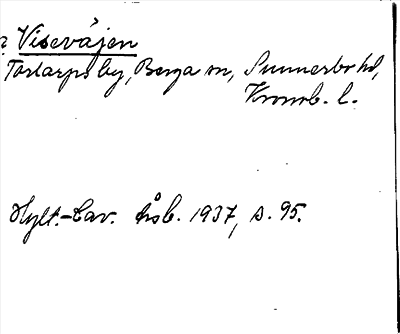 Viseväjen
Torlarps by, Berga sn, Sunnerbo hd,
Kronob. l.
Hylt.-Cav. hsb. 1937, s. 95.